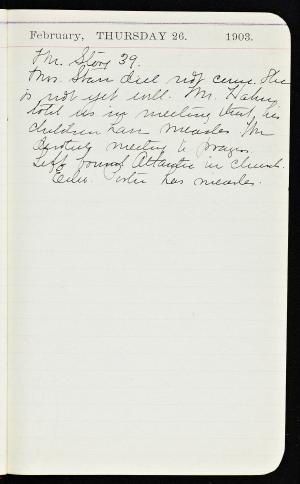 February, THURSDAY 26. 1903.
Mr. Story 39.
Mrs. Starr did not come. She
is not yet well. Mr.
told us in meeting that his
children have measles. We
meeting to prayer.
Left Atlantic in church.
Porter has measles.